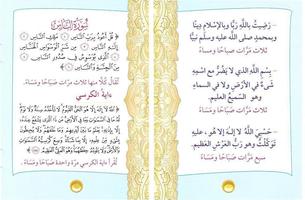 سُورَةُ النَّاسِ
﴿قُلْ أَعُوذُ بِرَبِّ النَّاسِ ۝ مَلِكِ النَّاسِ
۝ إِلَٰهِ النَّاسِ ۝ مِن شَرِّ الْوَسْوَاسِ الْخَنَّاسِ
۝ الَّذِي يُوَسْوِسُ فِي صُدُورِ النَّاسِ ۝
مِنَ الْجِنَّةِ وَالنَّاسِ﴾
تُقال كُلّ منها ثلاث مَرّات صَباحًا ومَسَاءً.
ءاية الكرسي
﴿اللَّهُ لَا إِلَٰهَ إِلَّا هُوَ الْحَيُّ الْقَيُّومُ
تُقرأ ءاية الكرسي مَرّة واحدة صَباحًا ومَسَاءً.
- رَضِيْتُ باللَّهِ رَبًّا وبالإسْلامِ دِينًا
وبمحمدٍ صلى الله عليه وسلّم نبيًّا
ثلاث مَرّات صباحًا ومساءً
- بِسْمِ اللَّهِ الذي لا يَضُرُّ مع اسْمِهِ
شَىءٌ في الأرْضِ ولا في السماءِ
وهو السَّميعُ العليم.
ثلاث مَرّات صباحًا ومَسَاءً
- حَسْبِيَ اللَّهُ لا إلهَ إلا هو، عليهِ
تَوكّلْتُ وهو ربُّ العَرْشِ العَظِيم.
سبع مَرّات صباحًا ومَسَاءً